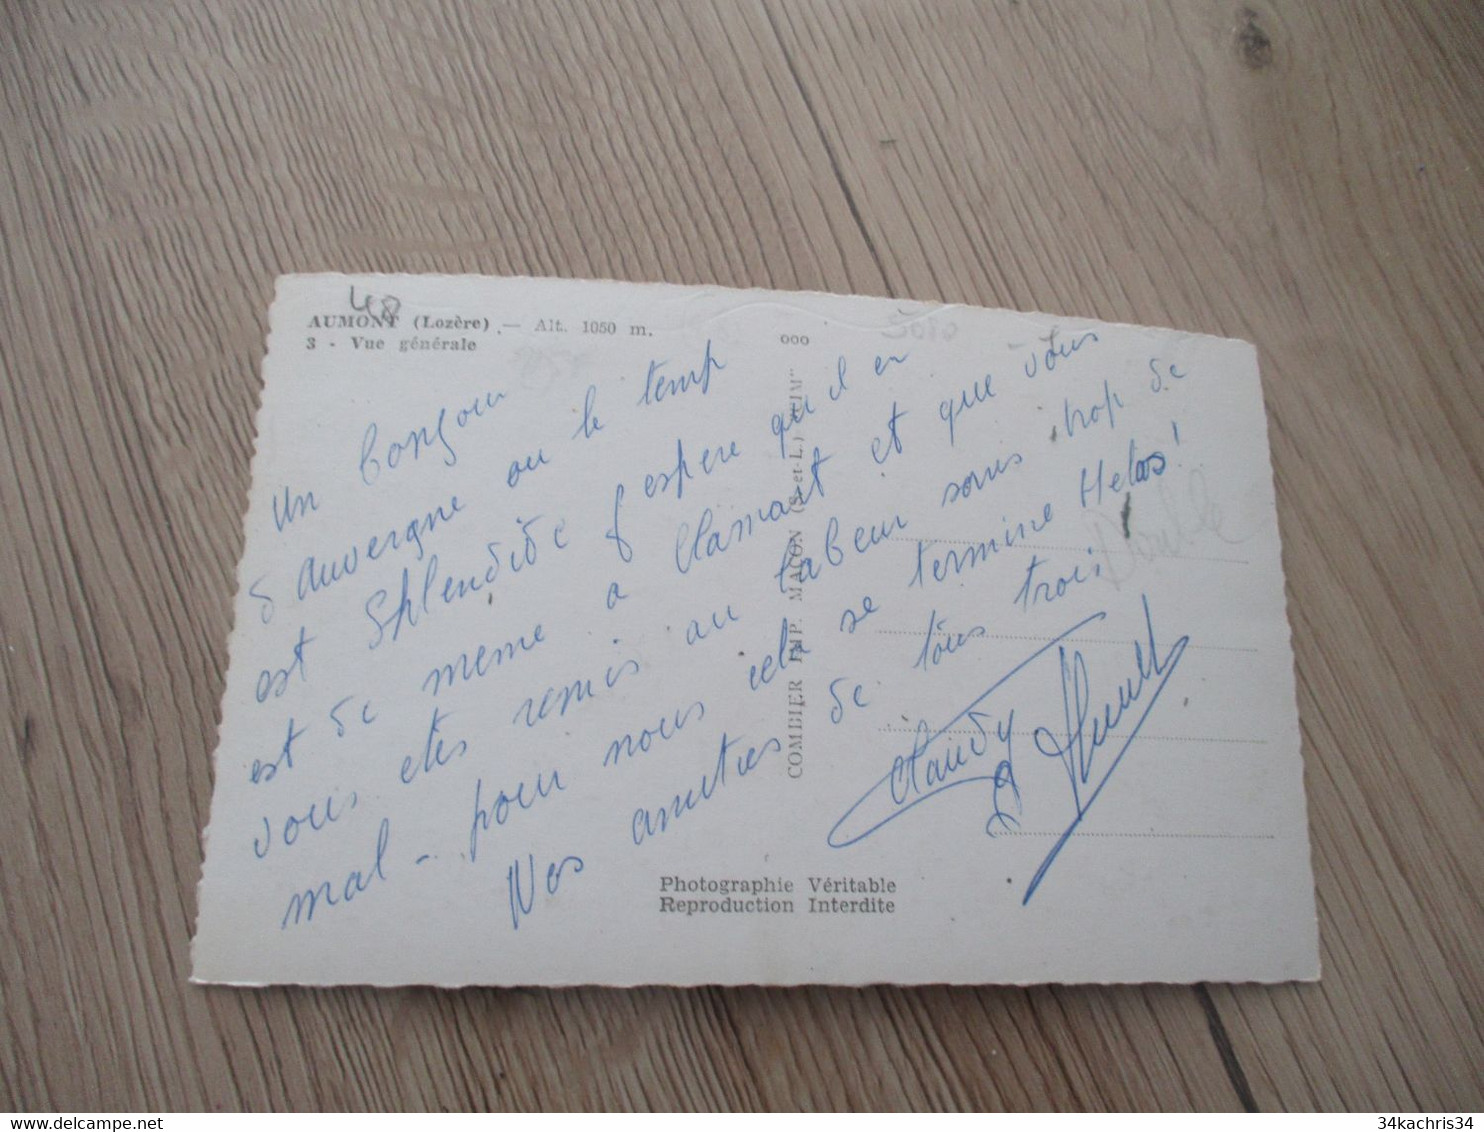 48
AUMONT (Lozère) — Alt. 1050 m.
3 - Vue générale
ooo
Un bonjour
d auvergne ou le temp
est Shlendide J espere qu il en
est de meme a Clamart et que vous
vous etes remis au labeur sans trop de
mal - pour nous cela se termine Helas!
Nos amities de tous trois
Claudy
Double
COMBIER IMP. MACON (S.-et-L.) "CIM"
Photographie Véritable
Reproduction Interdite
34kachris34